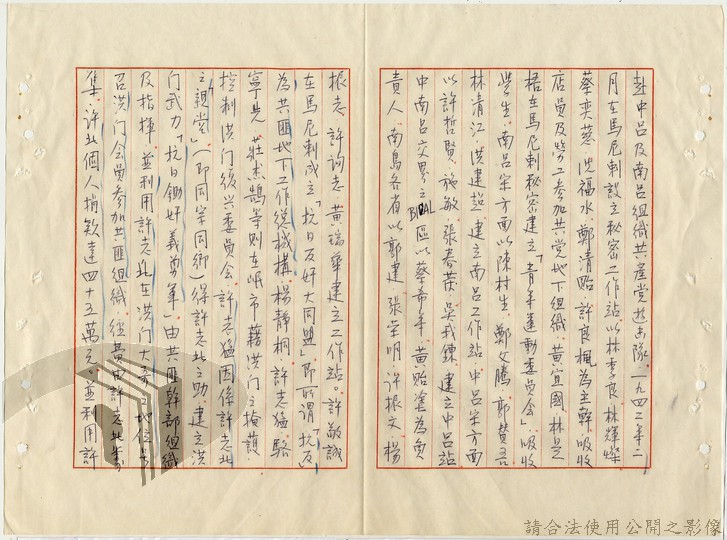 赴中呂及南呂組織共產党游击隊．一九四二年二
月在馬尼剌設立秘密工作站以林李良．林輝燦
蔡奕慈．沈福水．鄭清貽．許良楓為主幹．吸收
店員及勞工参加共党地下組織．黃宜國．林是
梧在馬尼剌秘密建立「青年運動委員会」吸收
学生．南呂宋方面以陳村生．鄭文騰．郭贊吾
林清江．洪建超．建立南呂工作站．中呂宋方面
以許哲賢．施敏．張春茂．吳我鍊．建立中呂站
中南呂交界之BIKAL區以蔡希平．黃貽塗為負
責人．南島各省以郭建．張宗明．許振文．楊
振志．許詢志．黃瑞華建立工作站．許敬誠
在馬尼剌成立「抗日反奸大同盟」即所謂「抗反」
為共匪地下工作總機構．楊靜桐．許志猛．駱
寧見．莊杰鵠等則在岷市藉洪门之掩護．
控制洪门復兴委員会．許志猛因係許志北
之親堂（即同宗同鄉）得許志北之助建立洪
门武力「抗日鋤奸義勇軍」由共匪幹部組織
及指揮．並利用許志北在洪门大哥之地位
召洪门会員参加共匪組織．經費由許志北
集．許北個人捐欵達四十五萬元．並利用許
請合法使用公開之影像